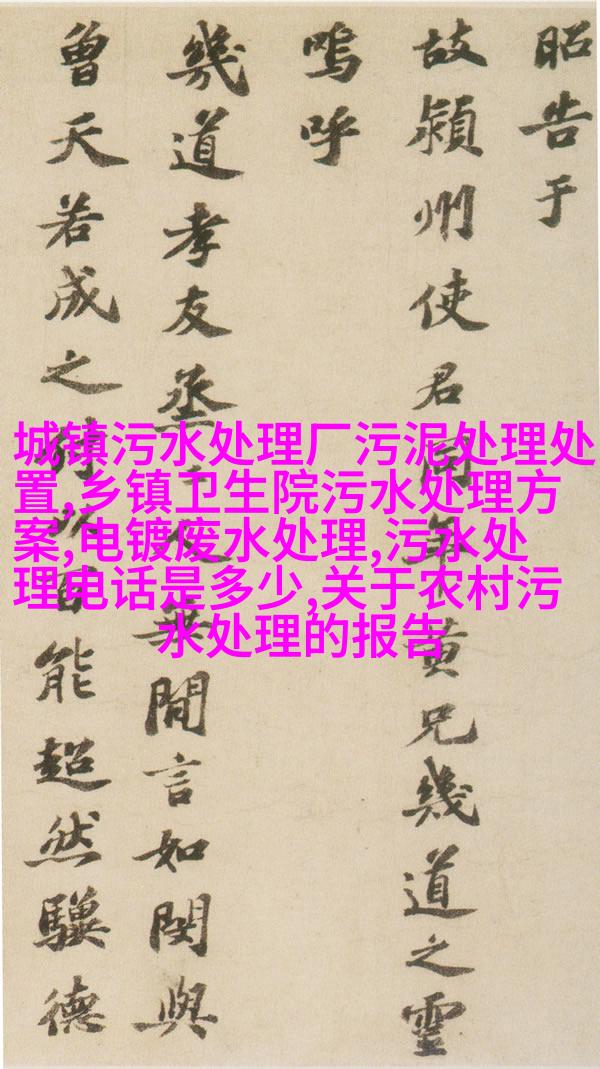 昭告于
故潁州使君同年黄兄幾道之靈
嗚呼
幾道孝友烝人無閒言如閔與
曾天若成之能超然驥德
城镇污水处理厂污泥处理处
置,乡镇卫生院污水处理方
案,电镀废水处理,污水处
理电话是多少,关于农村污
水处理的报告